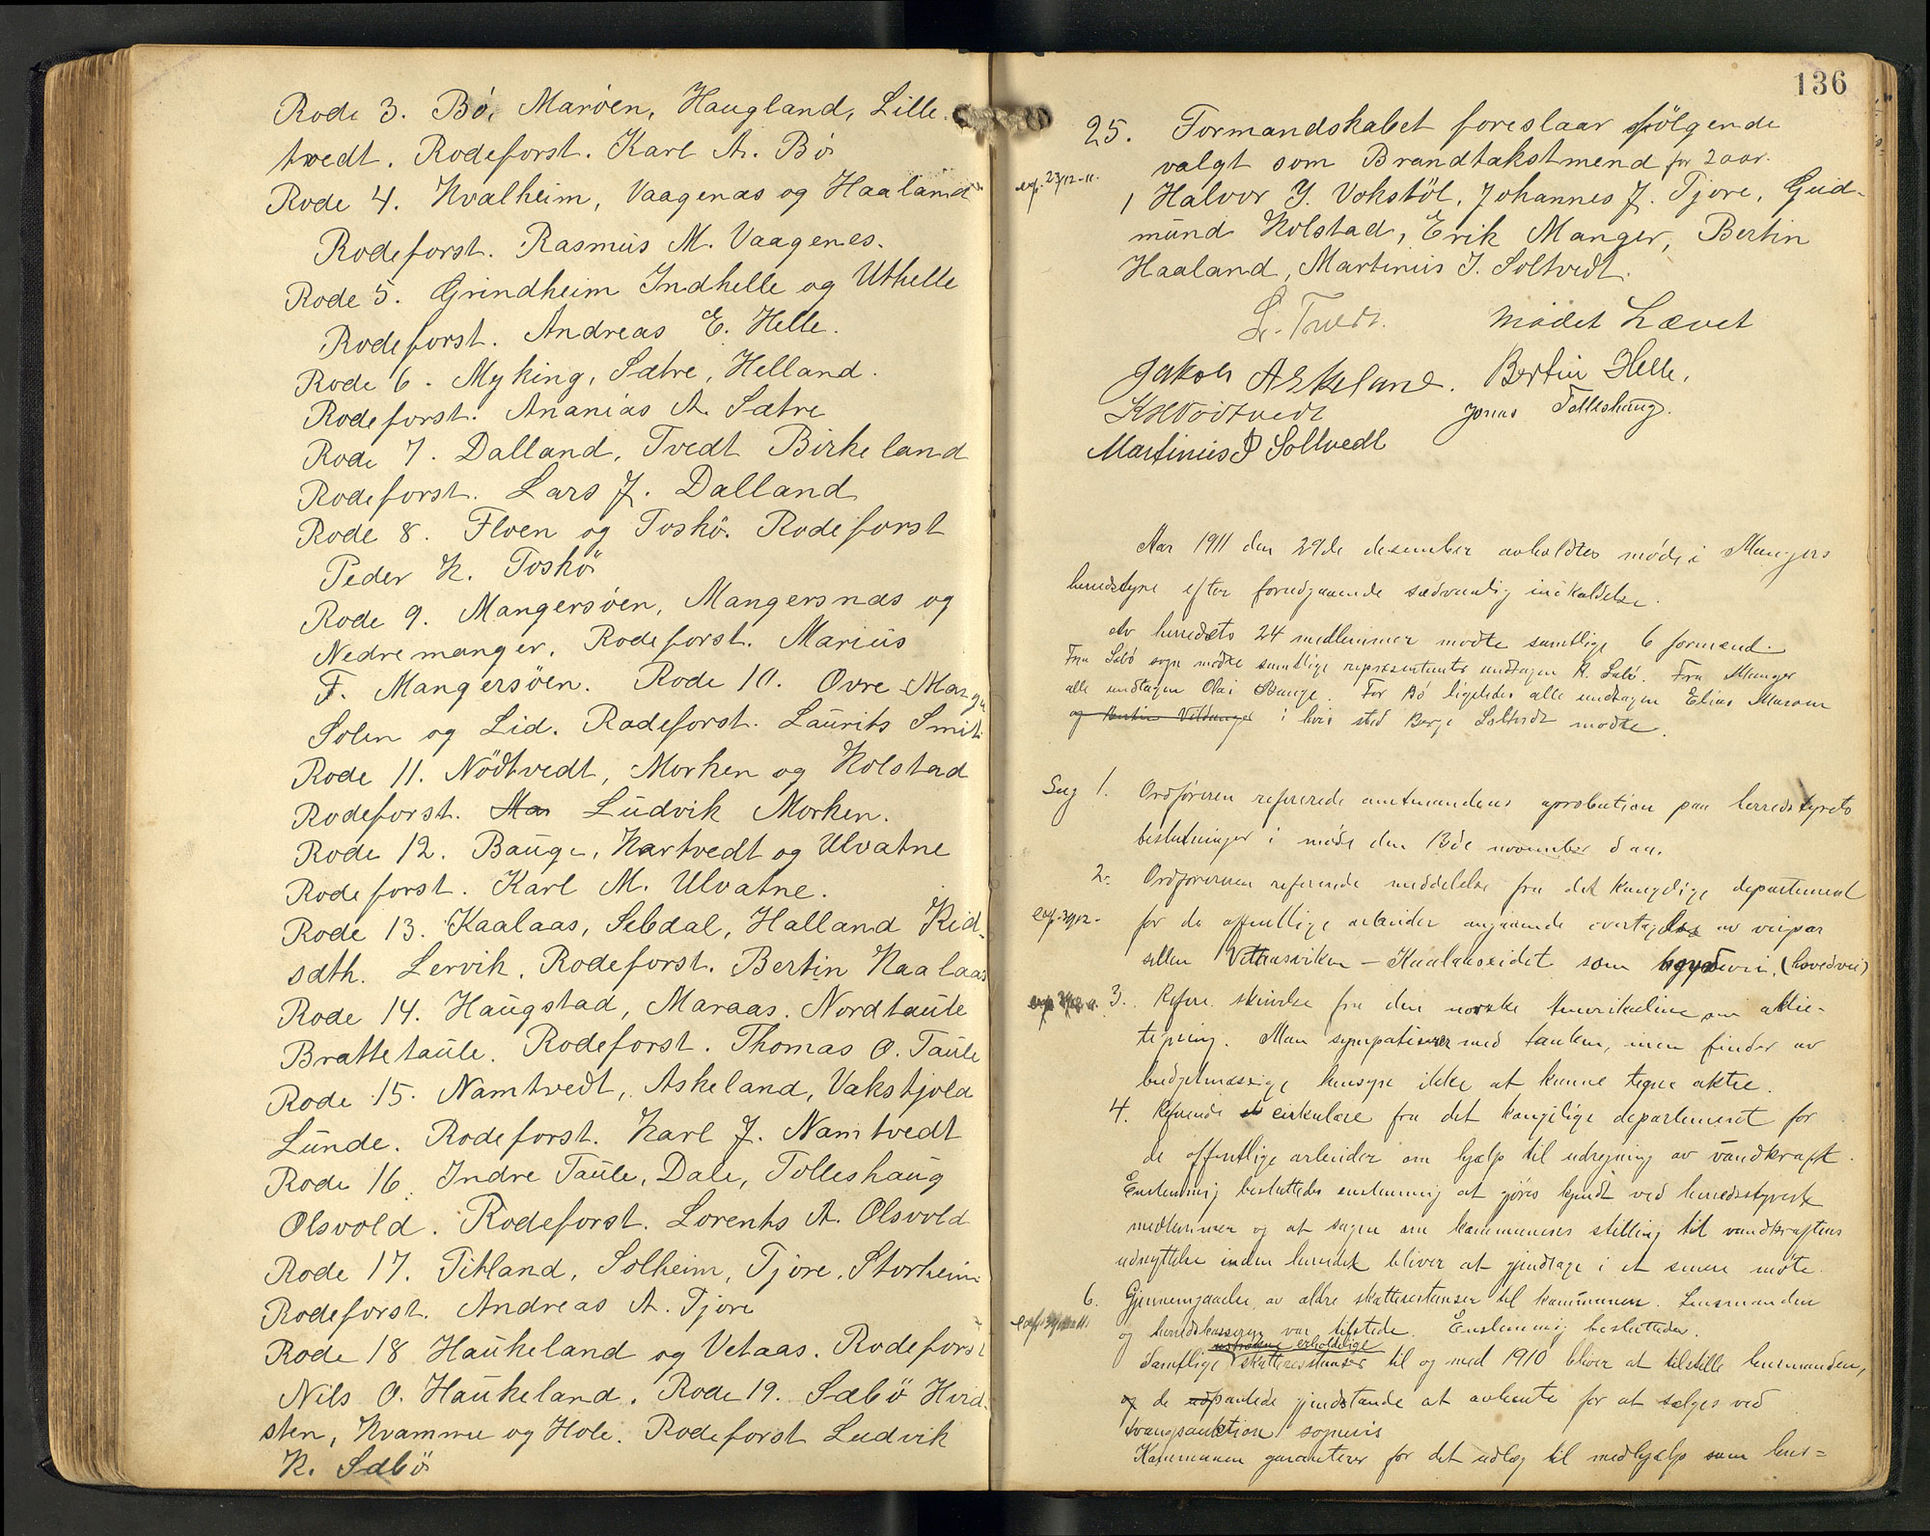 Rode 3. Bö, Maröen, Haugland, Lille-
tvedt. Rodeforst. Karl A. Bö
Rode 4. Kvalheim, Vaagenæs og Haaland
Rodeforst. Rasmus M. Vaagenes.
Rode 5. Grindheim Indhelle og Uthelle
Rodeforst. Andreas E. Helle.
Rode 6. Myking, Sætre, Helland.
Rodeforst. Ananias A. Sætre
Rode 7. Dalland, Tvedt Birkeland
Rodeforst. Lars J. Dalland
Rode 8. Floen og Toskö. Rodeforst
Peder K. Toskö
Rode 9. Mangersöen, Mangersnæs og
Nedremanger. Rodeforst. Marius
F. Mangersöen. Rode 10. Ovre Manger
Solen og Lid. Rodeforst. Laurits Smit
Rode 11. Nödtvedt, Morken og Kolstad
Rodeforst. Mar Ludvik Morken.
Rode 12. Bauge, Kartvedt og Ulvatne
Rodeforst. Karl M. Ulvatne.
Rode 13. Kaalaas, Sebdal, Halland Rid-
sæth. Lervik. Rodeforst. Bertin Kaalaas
Rode 14. Haugstad, Maraas. Nordtaule
Brattetaule. Rodeforst. Thomas O. Taule
Rode 15. Namtvedt, Askeland, Vakstjold
Lunde. Rodeforst. Karl J. Namtvedt
Rode 16. Indre Taule, Dale, Tolleshaug
Olsvold. Rodeforst. Lorents A. Olsvold
Rode 17. Titland, Solheim, Tjore, Storheim
Rodeforst. Andreas A. Tjore
Rode 18 Haukeland og Vetaas. Rodeforst
Nils O. Haukeland. Rode 19. Sæbö Hvid-
sten, Kvamme og Hole. Rodeforst Ludvik
K. Sæbö
136
25. Formandskabet foreslaar fölgende
valgt som Brandtakstmend for 2 aar.
exp. 23/12-11.
1 Halvor Y. Vokstöl, Johannes J. Tjore, Gud-
mund Kolstad, Erik Manger, Bertin
Haaland, Martinus J. Soltvedt.
L. Tvedt. Mödet Hævet
Jakob Askeland. Bertin Helle,
K Nödtvedt Jonas Tolleshaug.
Martinus J Soltvedt
Aar 1911 den 29de desember avholdtes möde i Mangers
herredstyre efter forudgaaende sædvanlig indkaldelse.
Av herredets 24 medlemmer mødte samtlige 6 formænd.
Fra Sæbö sogn mødte samtlige repræsentanter undtagen K. Sæbö. Fra Manger
alle undtagen Olai Bauge. For Bö ligeledes alle undtagen Elias Marøen
og Bertin i hvis sted Berge Soltvedt mødte.
Sag 1. Ordføreren refererede amtmandens aprobation paa herredstyrets
beslutninger i möde den 13de november d aa.
2. Ordføreren refererede meddelelse fra det kongelige departement
for de offentlige arbeider angaaende overtagelse av veipar
sellen Vetaasviken – Kaalaaseidet som bygdevei. (hovedvei)
3. Refere skrivelse fra den norske Amerikalinie om aktie-
tegning. Man sympatiserer med tanken, men finder av
budgetmæssige hensyn ikke at kunne tegne aktie.
4. Refererede cirkulære fra det kongelige departement for
de offentlige arbeider om hjælp til udregning av vandkraft.
Enstemmig besluttedes enstemmig at gjöres kjendt ved herredsstyrets
medlemmer og at sagen om kommunens stilling til vandkraftens
udnyttelse inden herredet bliver at gjendtage i et senere møte.
6. Gjennemgaaelse av ældre skatterestanser til kommunen. Lensmanden
og herredskasserer var tilstede. Enstemmig besluttedes.
erholdelige
Samtlige skatterestanser til og med 1910 bliver at tilstille lensmanden,
og de udpantede gjendstande at avhente for at sælges ved
tvangsauktion sognvis
Kommunen garanterer for det udlæg til medhjælp som lens=